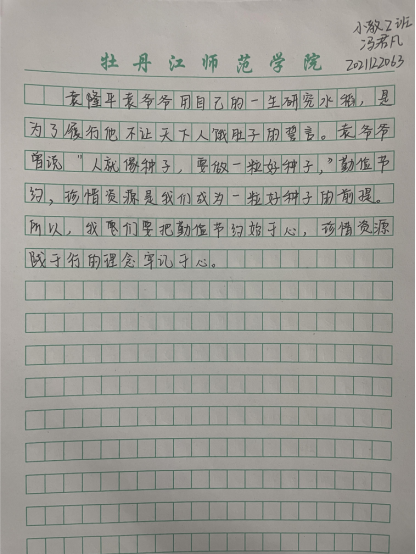 小教2班
冯君凡
2021122063
牡丹江师范学院
袁隆平袁爷爷用自己的一生研究水稻，是
为了履行他不让天下人饿肚子的誓言。袁爷爷
曾说"人就像种子，要做一粒好种子，"勤俭节
约，珍惜资源是我们成为一粒好种子的前提。
所以，我们要把勤俭节约始于心，珍惜资源
践于行的理念牢记于心。